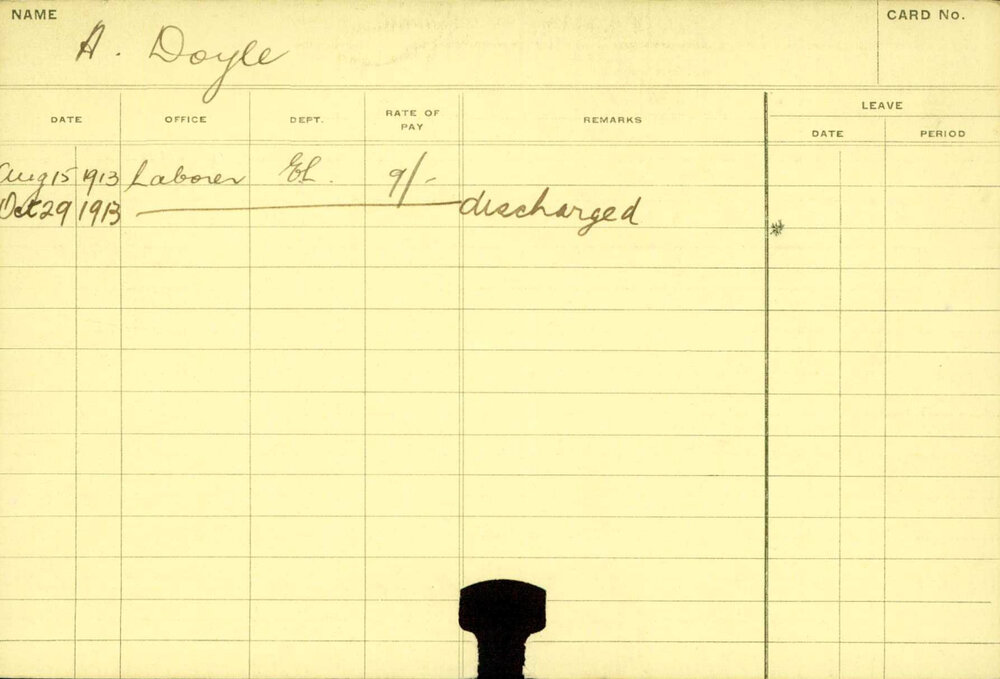 NAME
CARD No.
A. Doyle
DATE OFFICE DEPT. RATE OF PAY REMARKS LEAVE
DATE PERIOD
Aug 15 1913 Laborer EL. 9/-
Oct 29 1913 discharged